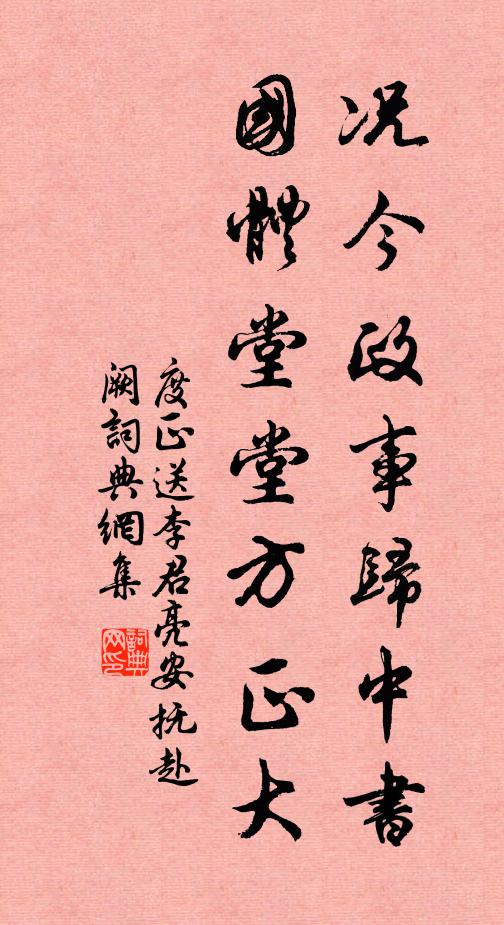 况今政事歸中書
國體堂堂方正大
度正送李君亮安抚赴
阙詞典網集
詞典网印